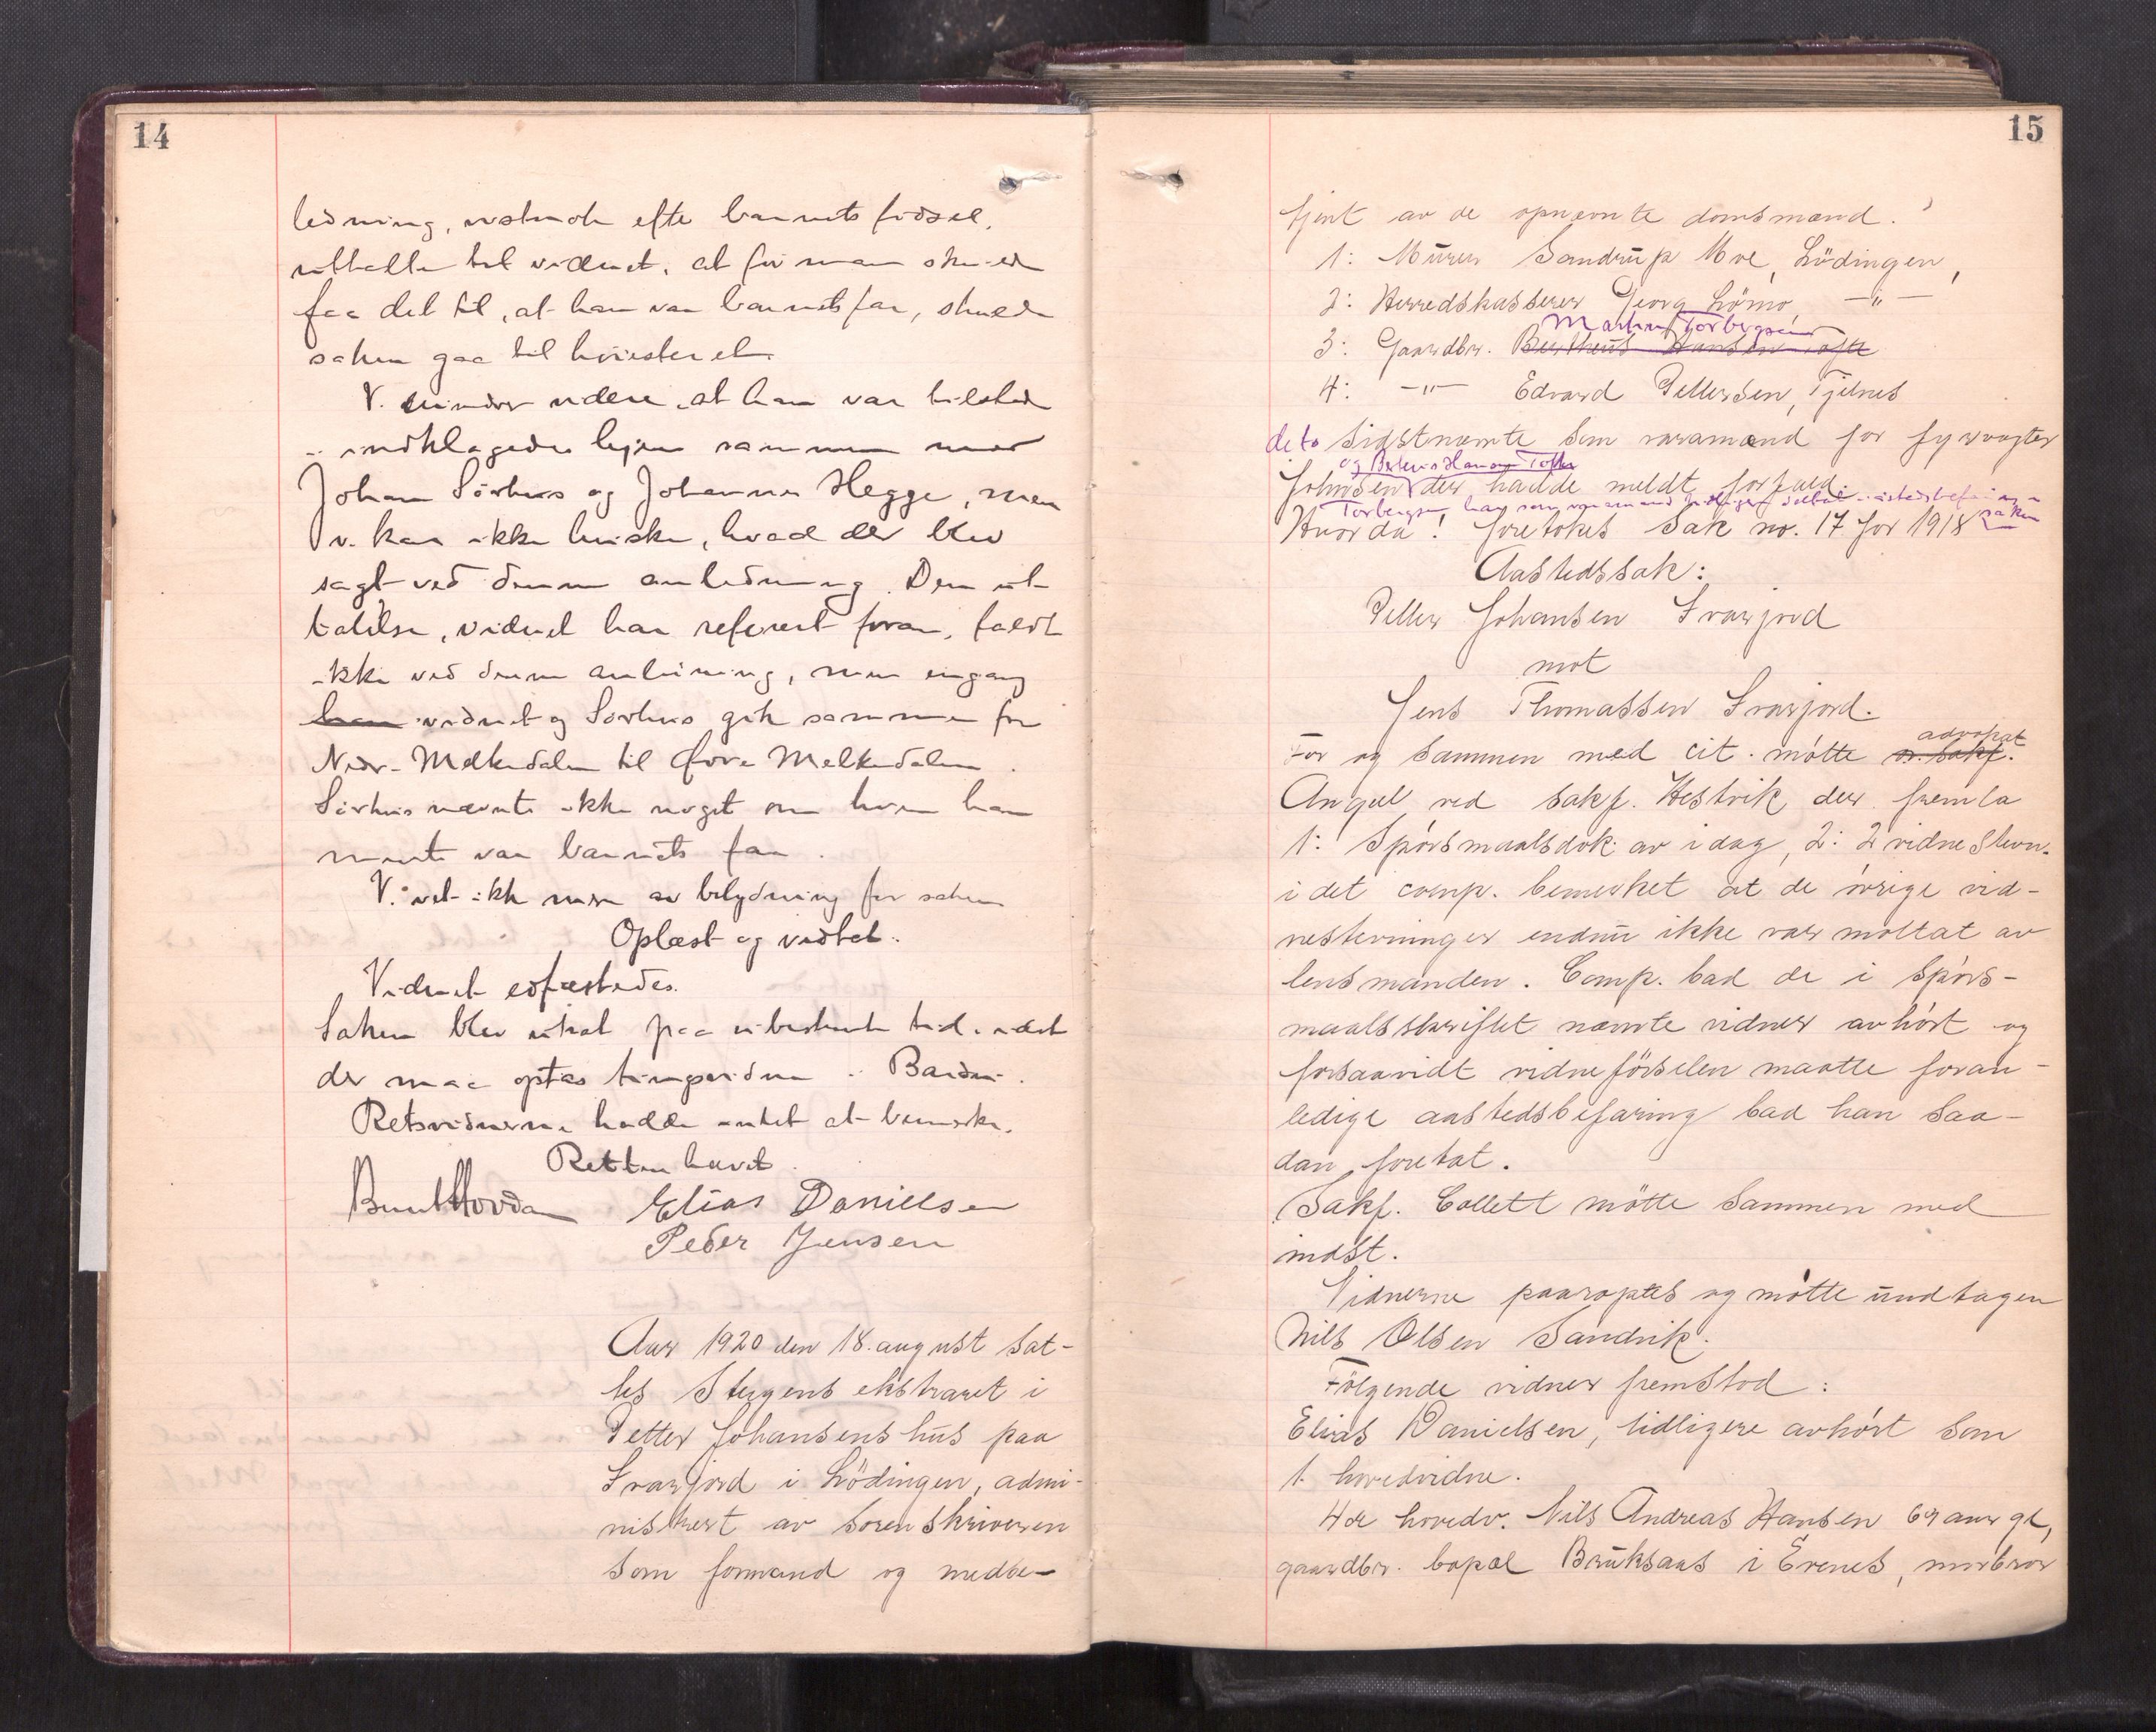 14
ledning, nstnok efter barnets fødsel,
uttalte til vidnet, at før man skulde
faa det til, at han var barnets far, skulde
saken gaa til høiesteret.
V. minder videre, at han var tilstede
i indklagedes hjem sammen med
Johan Sørhus og Johannes Hegge, men
v. kan ikke huske, hvad der blev
sagt ved denne anledning. Den ut-
talelse, vidnet har referert foran, faldt
ikke ved denne anledning, men engang
han vidnet og Sørhus gik sammen fra
Nedre-Melkedalen til Øvre Melkedalen.
Sørhus nævnte ikke noget om hvem han
mente var barnets far.
V. vet ikke mere av betydning for saken
Oplæst og vedtat.
Vidnet edfæstedes.
Saken blev utsat paa ubestemt tid, idet
der maa optas tingsvidne i Bardu.
Retsvidnerne hadde intet at bemerke.
Retten hævet.
Bernt Hovda Elias Danielsen
Peder Jensen
Aar 1920 den 18. august sat-
tes Steigens ekstraret i
Petter Johansens hus paa
Svarfjord i Lödingen, admi-
nistrert av sorenskriveren
som formand og medbe-
15
tjent av de opnævnte domsmænd:
1: Murer Sandrup Moe, Lödingen,
2: Herredskasserer Georg Lömo, -"-
Martin Torbergsen
3: Gaardbr. Bertheus Hansen Tofte
4: -"- Edvard Pettersen, Fjelnes
de to sidstnævnte som varamænd for fyrvogter
og Berteus Hansen Tofte
Johnsen der hadde meldt forfald.
Torbergsen har som varamand tidligere deltat i aastedsbefaring i saken
Hvorda! foretokes sak no. 17 for 1918
Aastedssak:
Petter Johansen Svarfjord
mot
Jens Thomassen Svarfjord.
advokat
For og sammen med cit. møtte o. sakf.
Angell ved sakf. Hestvik, der fremla
1: Spørsmaalsdok. av idag, 2: 2 vidnestevn.
idet comp. bemerket at de øvrige vid-
nestevninger endnu ikke var mottat av
lensmanden. Comp. bad de i spørs-
maalsskriftet nævnte vidner avhört og
forsaavidt vidneførselen maatte foran-
ledige aastedsbefaring bad han saa-
dan foretat.
Sakf. Collett mötte sammen med
indst.
Vidnerne paaroptes og møtte undtagen
Nils Olsen Sandvik.
Følgende vidner fremstod:
Elias Danielsen, tidligere avhört som
1. hovedvidne.
4de hovedv. Nils Andreas Hansen 69 aar gl,
gaardbr. bopæl Bruksaas i Evenes, morbror